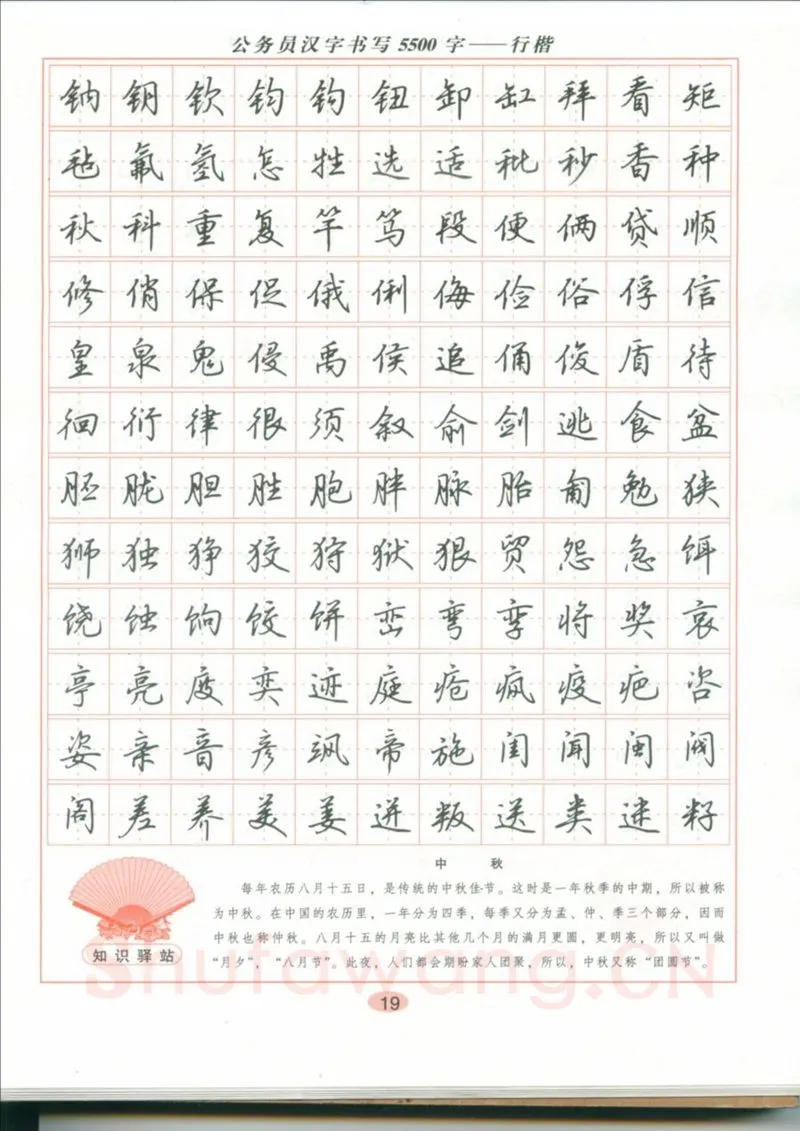 公务员汉字书写5500字——行楷
钠 钥 钦 钧 钩 钮 卸 缸 拜 看 矩
毡 氟 氢 怎 牲 选 适 秕 秒 香 种
秋 科 重 复 竿 笃 段 便 俩 贷 顺
修 俏 保 促 俄 俐 侮 俭 俗 俘 信
皇 泉 鬼 侵 禹 侯 追 俑 俊 盾 待
徊 衍 律 很 须 叙 俞 剑 逃 食 盆
胚 胧 胆 胜 胞 胖 脉 胎 匍 勉 狭
狮 独 狰 狡 狩 狱 狠 贸 怨 急 饵
饶 蚀 饷 饺 饼 峦 弯 孪 将 奖 哀
亭 亮 度 奕 迹 庭 疮 疯 疫 疤 咨
姿 亲 音 彦 飒 帝 施 闺 闻 闽 阀
阁 差 养 美 姜 迸 叛 送 类 迷 籽
中 秋
每年农历八月十五日，是传统的中秋佳节。这时是一年秋季的中期，所以被称
为中秋。在中国的农历里，一年分为四季，每季又分为孟、仲、季三个部分，因而
中秋也称仲秋。八月十五的月亮比其他几个月的满月更圆，更明亮，所以又叫做
“月夕”，“八月节”。此夜，人们都会期盼家人团聚，所以，中秋又称“团圆节”。
知识驿站
Shufawang.CN
19